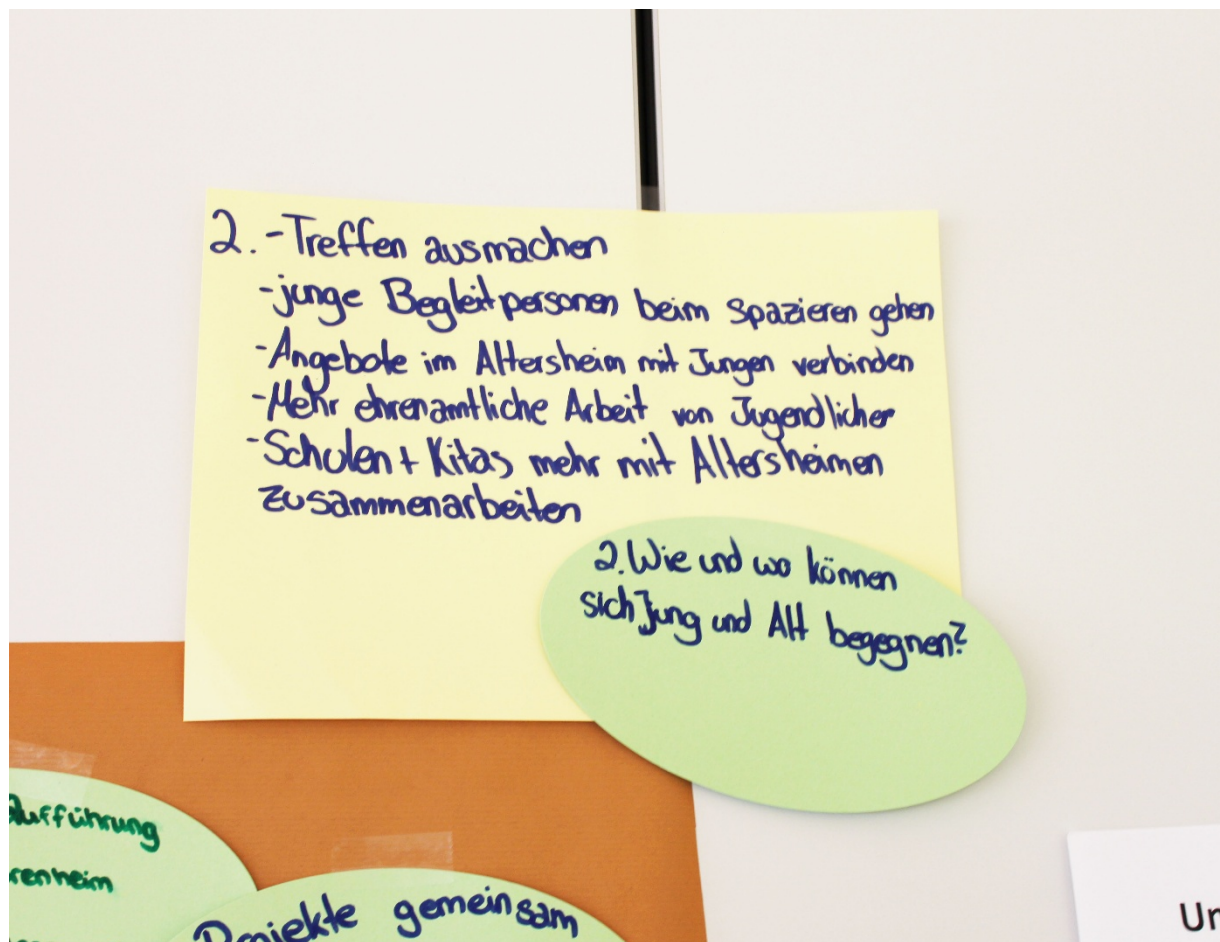 2. - Treffen ausmachen
- junge Begleitpersonen beim Spazieren gehen
- Angebote im Altersheim mit Jungen verbinden
- Mehr ehrenamtliche Arbeit von Jugendlicher
- Schulen + Kitas mehr mit Altersheimen
zusammenarbeiten
2. Wie und wo können
sich Jung und Alt begegnen?
Aufführung
renheim
Projekte gemeinsam
Un